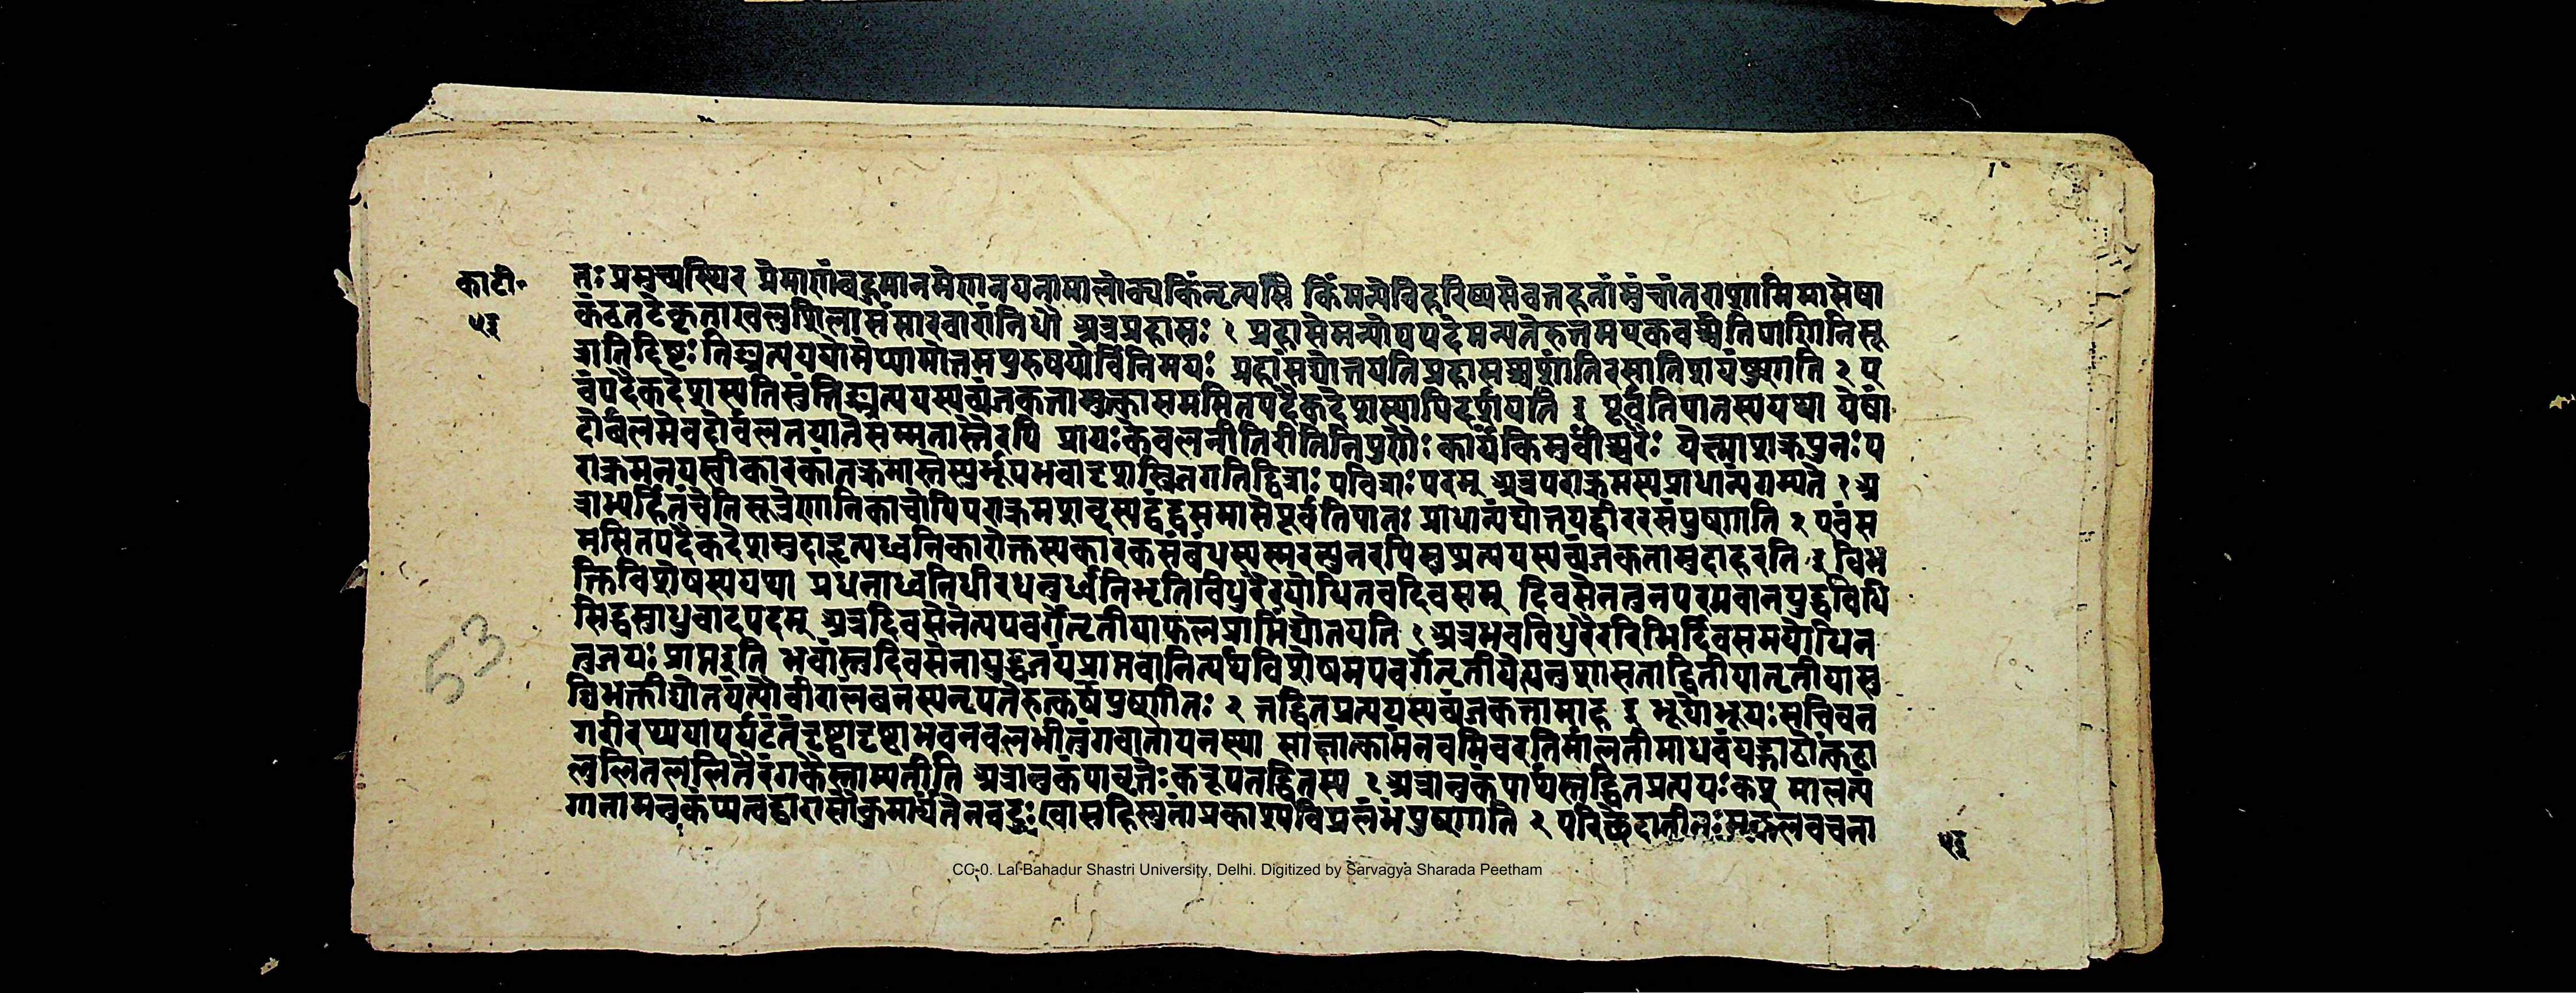 काटी॰
५३
तः प्रमुच्यस्थिर प्रेमाणंबहुमानमेणनयनामालोक्यकिंनृत्यसि किंमन्येविहरिष्यसेबतहतांमुंचांतराशामिमामेषा
कंठतटेकृताखलुशिलासंसारवारांनिधौ अत्रप्रहासः १ प्रहासेमन्योपपदेमन्यतेरुत्तमएकवच्चेतिपाणिनिसू
त्रातिदिष्टः तिङ्प्रत्यययोर्मध्यमोत्तमपुरुषयोर्विनिमयः प्रहासंद्योतयतिप्रहासश्चशांतिरसातिशयंपुष्णाति २ ए
वंपदैकदेशस्यतिसुंतिङ्प्रत्ययस्यव्यंजकतामुक्त्वासमसितपदैकदेशस्यापिदर्शयति ३ पूर्वनिपातस्ययथा येषां
दोर्बलमेवदौर्बलतयातेसम्मतास्तैरपि प्रायःकेवलनीतिरीतिनिपुणैः कार्यंकिमुर्वीश्वरैः येक्ष्माशक्रपुनःप
राक्रमनयस्वीकारकांतक्रमास्तेस्युर्भूपभवादृशास्त्रिजगतिद्वित्राः पवित्राः परम् अत्रपराक्रमस्यप्राधान्यंगम्यते १ अ
त्राभ्यर्हितंचेतिसूत्रेणानिकाचोपिपराक्रमशब्दस्यद्वंद्वसमासेपूर्वनिपातः प्राधान्यंद्योतयद्वीररसंपुष्णाति २ एवंस
मसितपदैकदेशमुदाहृत्यध्वनिकारोक्तस्यकारकसंबंधस्यस्मरन्पुनरपिसुप्प्रत्ययस्यव्यंजकतामुदाहरति ३ विभ
क्तिविशेषस्ययथा प्रधनाध्वनिधीरधनुर्ध्वनिभृतिविधुरैरयोधितवदिवसम् दिवसेनतुनरपभवानयुद्धविधि
सिद्धसाधुवादपदम् अत्रदिवसेनेत्यपवर्गेतृतीयाफलप्राप्तिंद्योतयति १ अत्रभवविधुरैररिभिर्दिवसमयोधिन
तुजयः प्राप्तइति भवांस्तुदिवसेनायुद्धजयंप्राप्तवानित्यर्थविशेषमपवर्गेतृतीयेत्यनुशासनाद्द्वितीयातृतीयासु
ब्विभक्तीद्योतयंत्यौवीरालंबनस्यनृपतेरुत्कर्षंपुष्णीतः २ तद्धितप्रत्ययस्यव्यंजकतामाह ३ भूयोभूयःसविधन
गरीरथ्ययापर्यटंतंदृष्ट्वादृष्ट्वाभवनवलभीतुंगवातायनस्था साक्षात्कामंनवमिवरतिर्मालतीमाधवंयद्गाढोत्कंठा
लुलितलुलितैरंगकैस्ताम्यतीति अत्रानुकंपावृत्तेः करूपतद्धितस्य १ अत्रानुकंपार्थस्तद्धितप्रत्ययः कप् मालत्यं
गानामनुकंप्यत्वद्वारासौकुमार्यंतेनचदुःखासहिष्णुतांप्रकाश्यविप्रलंभंपुष्णाति २ परिच्छेदातीतःसकलवचना
५३
53
CC-0. Lal Bahadur Shastri University, Delhi. Digitized by Sarvagya Sharada Peetham